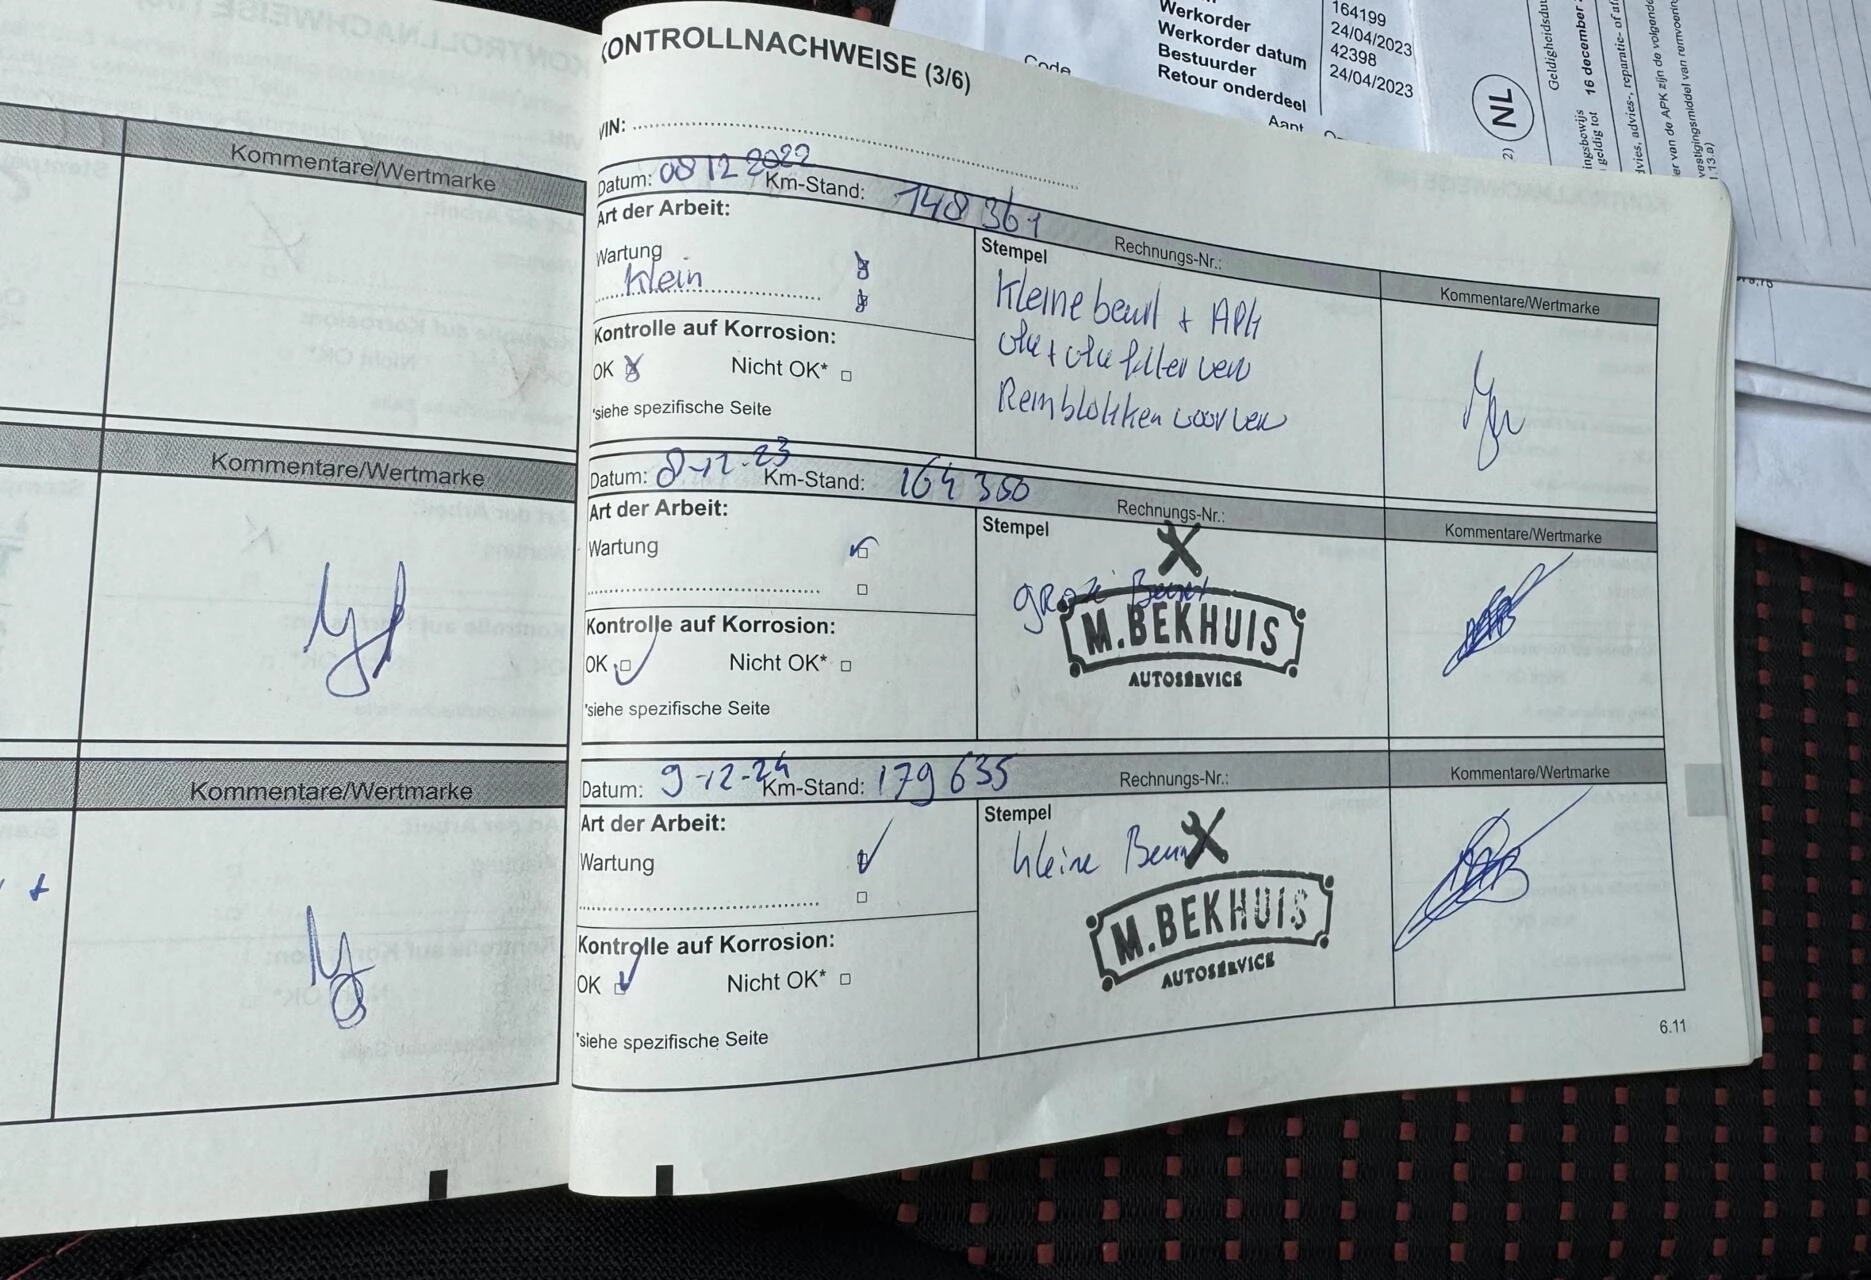 Kommentare/Wertmarke
Kommentare/Wertmarke
Kommentare/Wertmarke
KONTROLLNACHWEISE (3/6)
VIN:
Datum: 08 12 2022 Km-Stand: 148 361
Art der Arbeit:
Rechnungs-Nr.:
Kommentare/Wertmarke
Wartung
Klein
Stempel
Kleine beurt + APK
olie + olie filter verv
Remblokken voor verv
Kontrolle auf Korrosion:
OK Nicht OK*
*siehe spezifische Seite
Datum: 8-12-23 Km-Stand: 164 350
Art der Arbeit:
Rechnungs-Nr.:
Kommentare/Wertmarke
Wartung
Stempel
grote Beurt
M. BEKHUIS
AUTOSERVICE
Kontrolle auf Korrosion:
OK Nicht OK*
*siehe spezifische Seite
Datum: 9-12-24 Km-Stand: 179 635
Art der Arbeit:
Rechnungs-Nr.:
Kommentare/Wertmarke
Wartung
Stempel
kleine Beurt
M. BEKHUIS
AUTOSERVICE
Kontrolle auf Korrosion:
OK Nicht OK*
*siehe spezifische Seite
6.11
Code
Werkorder 164199
Werkorder datum 24/04/2023
Bestuurder 42398
Retour onderdeel 24/04/2023
Aant
NL
2)
Geldigheidsduur
geldig tot 16 december